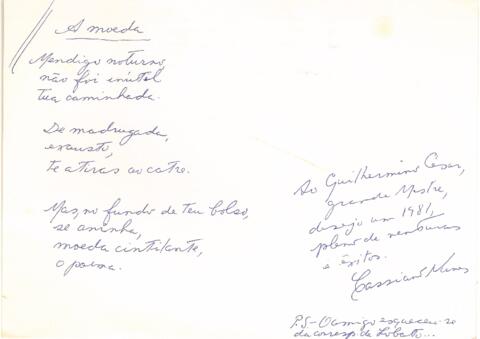 A moeda
Mendigo noturno,
não foi inútil
tua caminhada.
De madrugada,
exausto,
te atiras ao catre.
Mas, no fundo de teu bolso,
se aninha,
moeda cintilante,
o poema.
Ao Guilhermino Cesar,
grande Mestre,
desejo um 1981,
pleno de venturas
e êxitos.
Cassiano Nunes
P.S - O amigo esqueceu-se
da corresp. de Lobato...